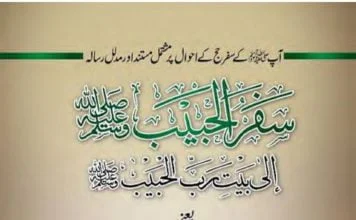 آپ ﷺ کے سفر حج کے احوال پر مشتمل مستند اور مدلل رسالہ
سفر الحبیب ﷺ
إلى بیت ربّ الحبیب ﷺ
یعنی